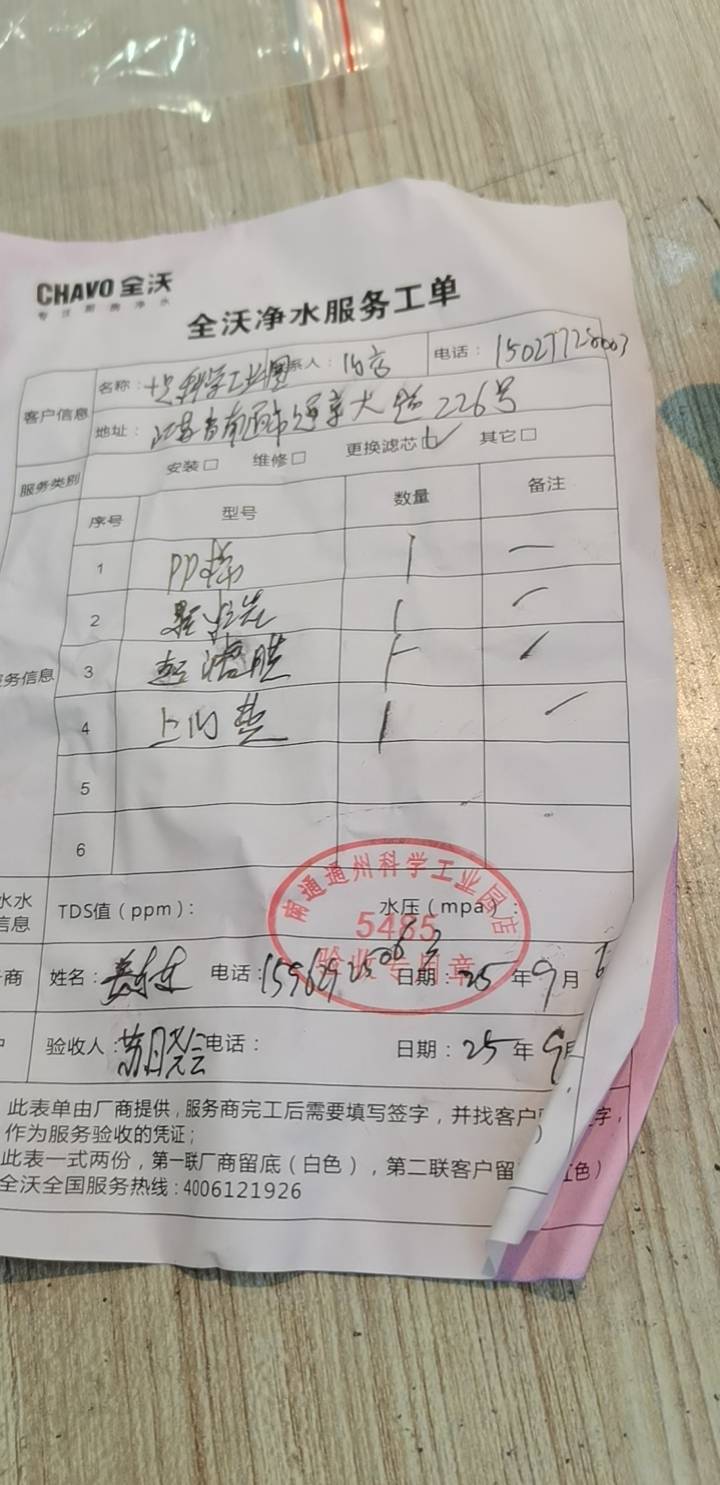 CHAVO 全沃
专注厨房净水
全沃净水服务工单
客户信息 名称: 科学工业园 系人: 电话:
地址: 江苏省南通市 大道226号
服务类别 安装□ 维修□ 更换滤芯☑ 其它□
序号 型号 数量 备注
务信息
1 PP棉 1 —
2 1 —
3 膜 1 —
4 上门费 1 —
5
6
水水信息 TDS值(ppm): 水压(mpa):
南通通州科学工业园店
5485
验收专用章
商 姓名: 电话: 日期: 25年9月
验收人: 电话: 日期: 25年9月
此表单由厂商提供,服务商完工后需要填写签字,并找客户 字,
作为服务验收的凭证;
此表一式两份,第一联厂商留底(白色),第二联客户留 红色)
全沃全国服务热线:4006121926